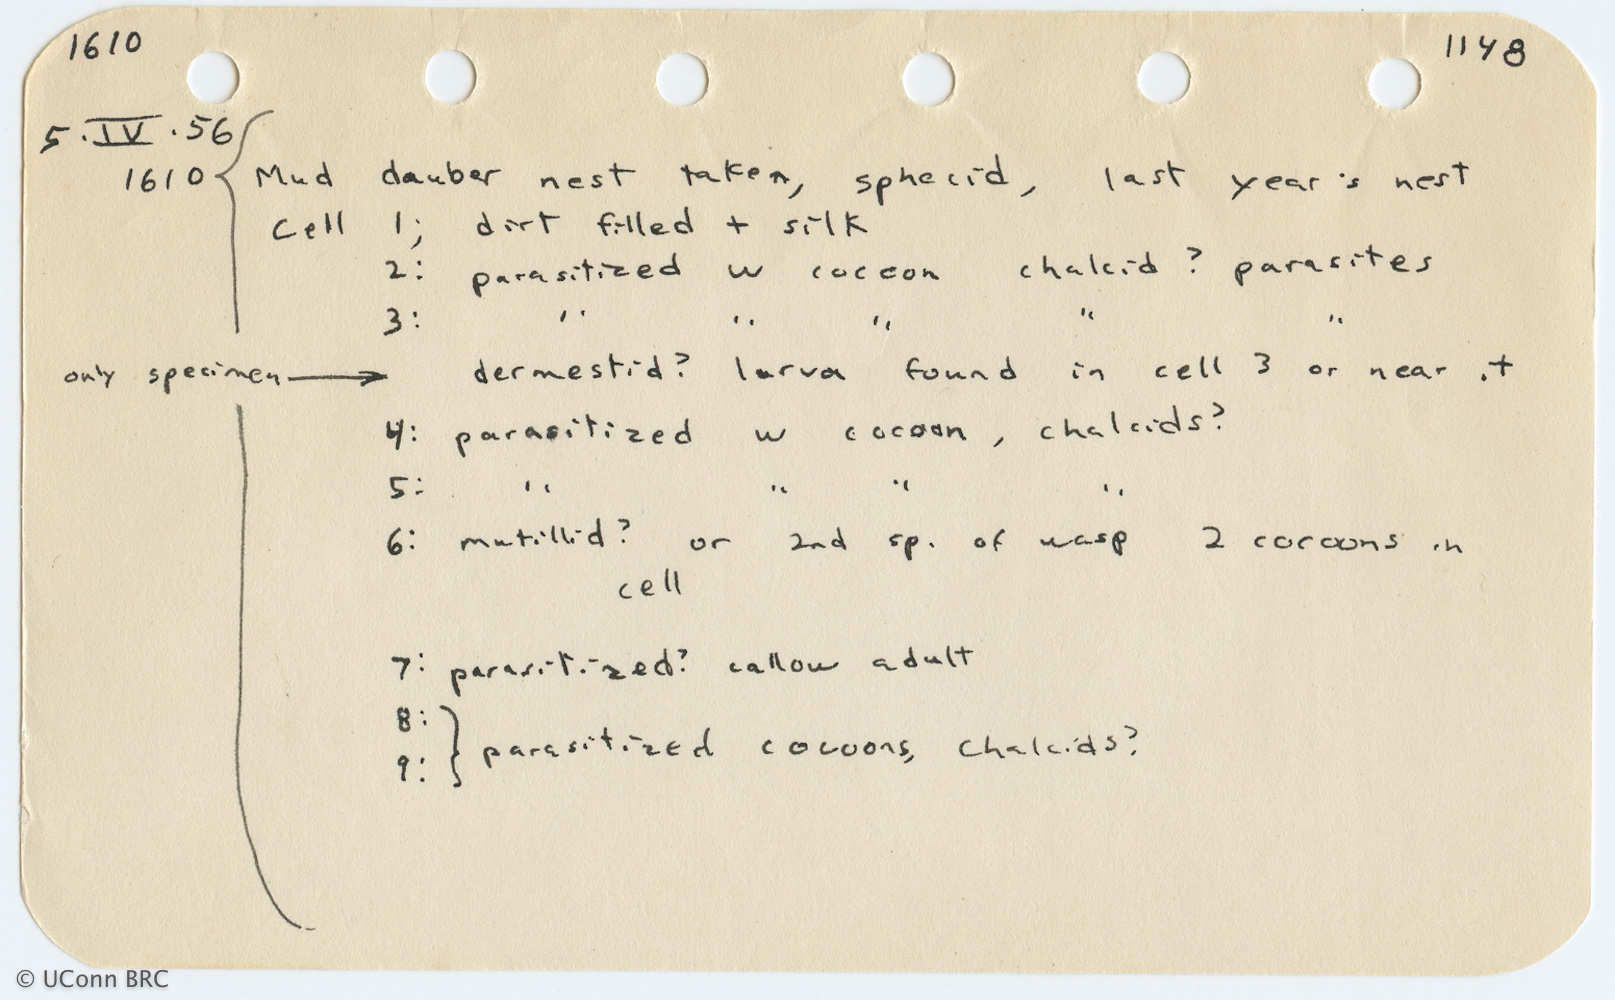 1610 1148
5.IV.56
1610 Mud dauber nest taken, sphecid, last year's nest
Cell 1; dirt filled + silk
2: parasitized w cocoon chalcid ? parasites
3: " " " " "
only specimen → dermestid? larva found in cell 3 or near it
4: parasitized w cocoon, chalcids?
5: " " " "
6: mutillid? or 2nd sp. of wasp 2 cocoons in
cell
7: parasitized? callow adult
8:
9: } parasitized cocoons, chalcids?
© UConn BRC